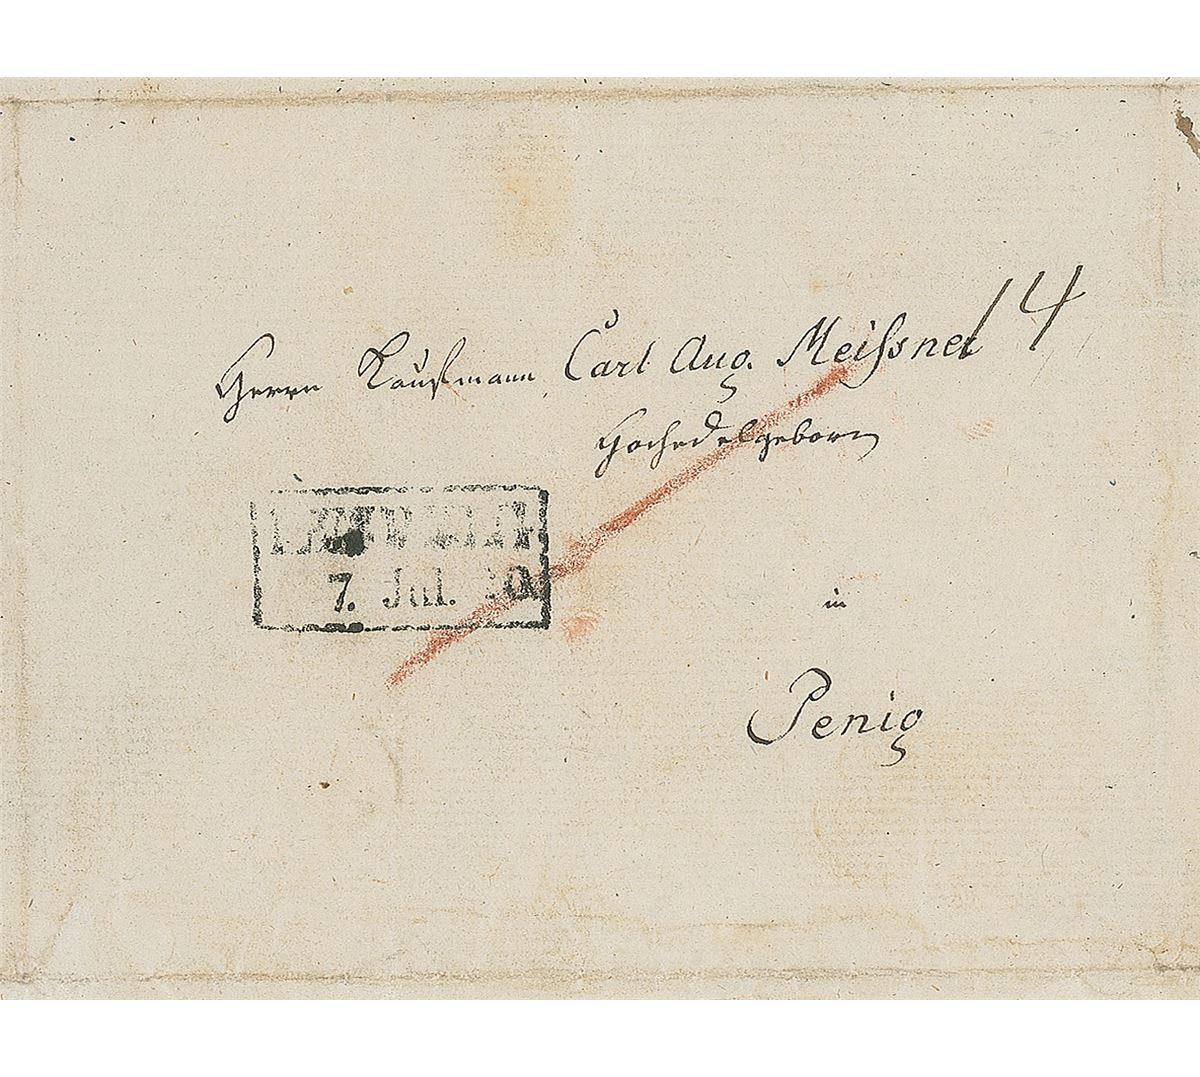 Herrn Kaufmann Carl Aug. Meissner
14
Hochedelgeborn
7. Jul.
in
Penig